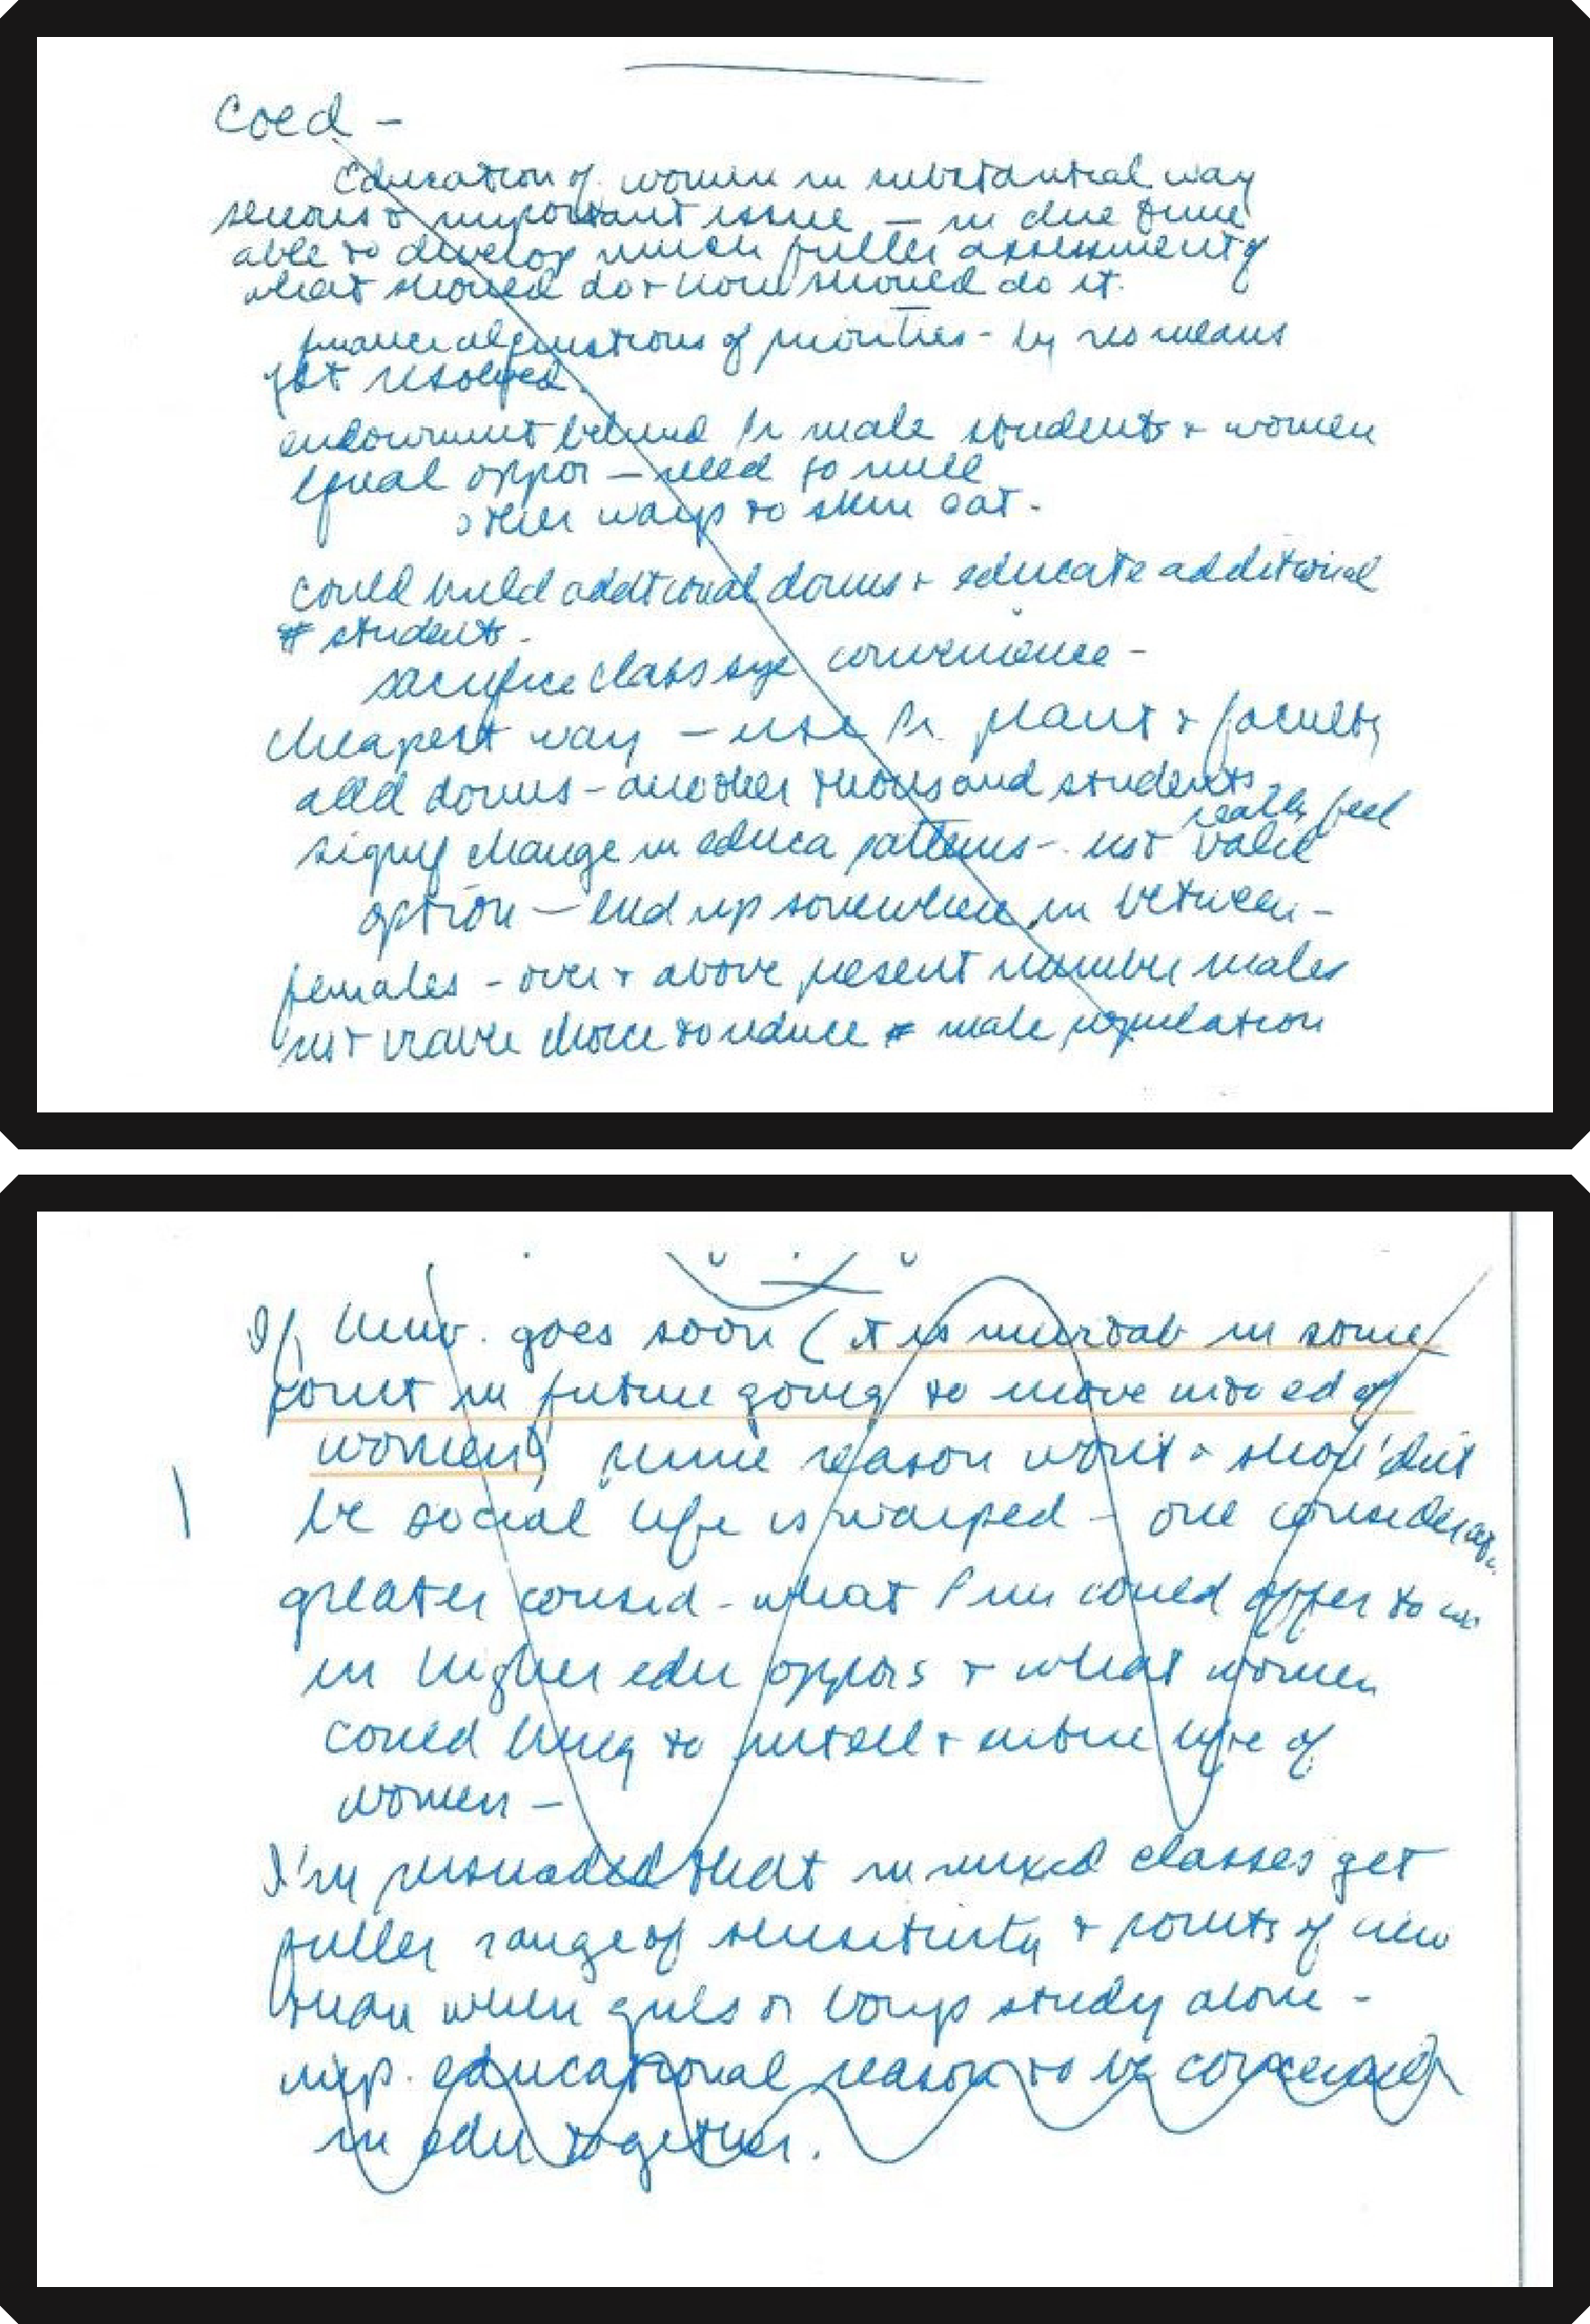 Coed -
Education of women in substantial way
serious & important issue — in due time
able to develop much fuller assessment of
what should do & how should do it.
financial questions of priorities - by no means
yet resolved.
endowment behind Pr male students & women
equal oppor — need to
other ways to skin cat.
could build addtional dorms & educate additional
# students -
sacrifice class size convenience -
cheapest way — use Pr. plant & faculty
add dorms - another thousand students
really feel
signif change in educa patterns - not valid
option — end up somewhere in between -
females - over & above present number males
not viable choice to reduce # male population
If Univ. goes soon (it is inevitab in some
point in future going to move into ed of
women) prime reason won't & shouldn't
be social life is warped - one considerat.
greater consid - what Prin could offer to
in higher edu oppors & what women
could bring to intell & entire life of
women —
I'm persuaded that in mixed classes get
fuller range of sensitivity & points of view
than when girls or boys study alone -
imp. educational reason to be concerned
in edu together.